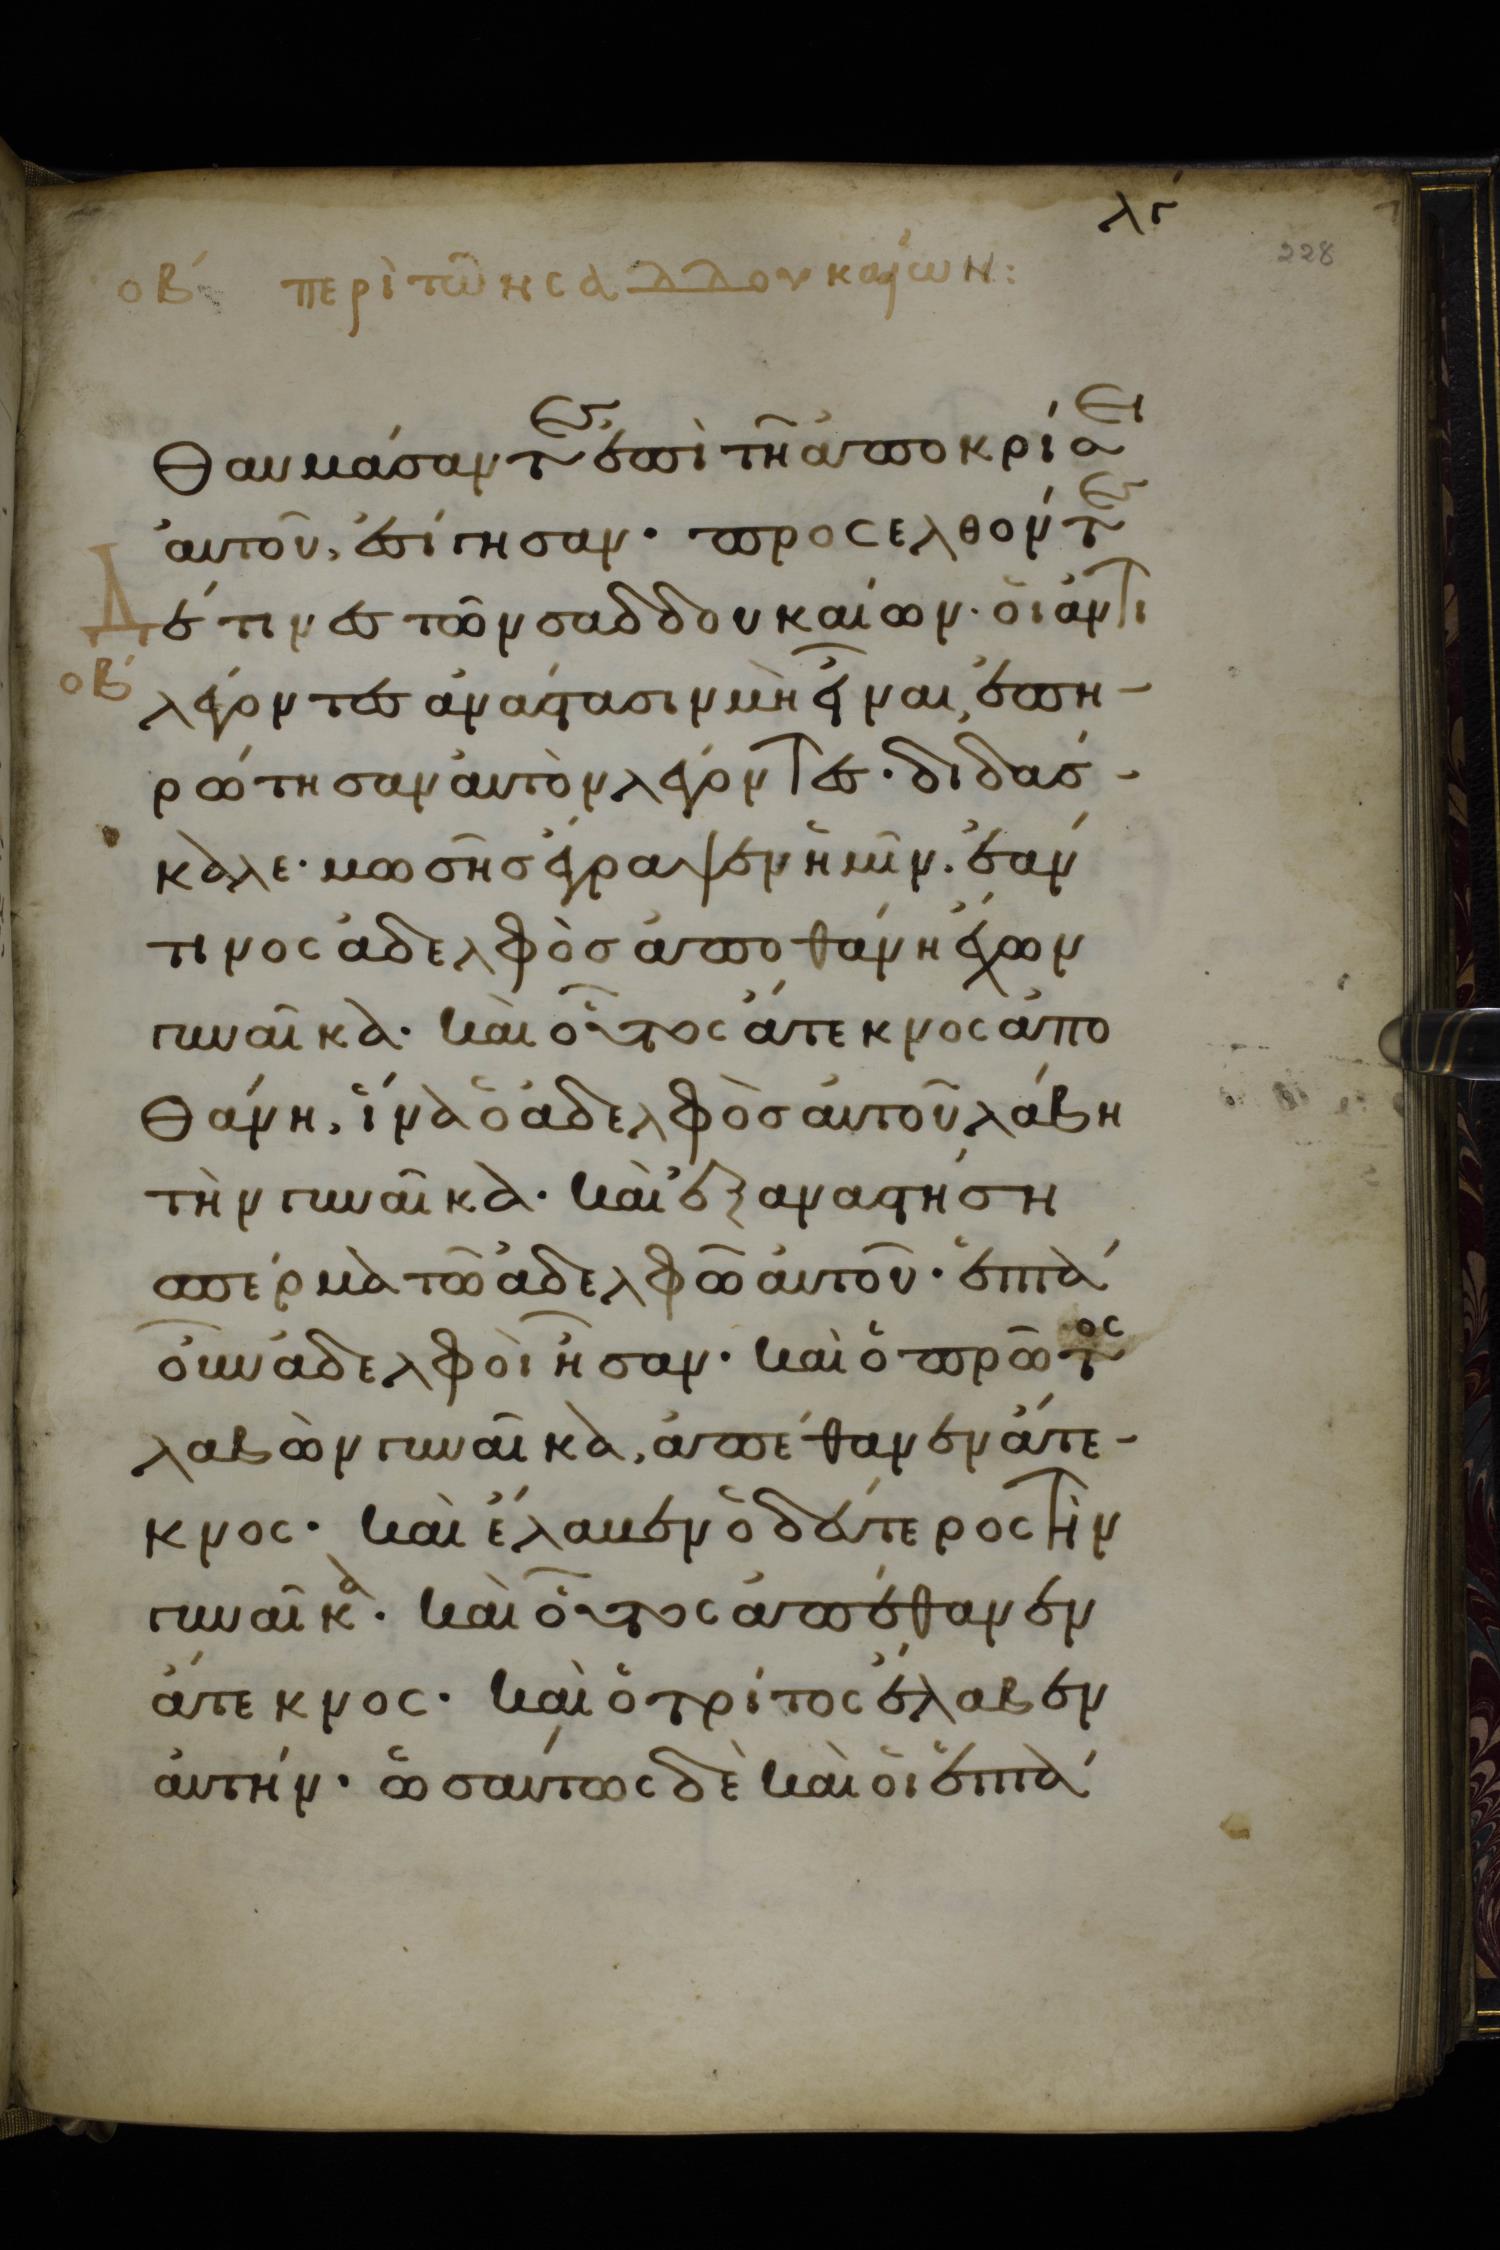 λγ
228
οβ περὶ τῶν σαδδουκαίων:
θαυμάσαντες ἐπὶ τῇ ἀποκρίσει
αὐτοῦ, ἐσίγησαν· προσελθόντες
δέ τινες τῶν σαδδουκαίων· οἱ ἀντι
οβ
λέγοντες ἀνάστασιν μὴ εἶναι, ἐπη-
ρώτησαν αὐτὸν λέγοντες· διδάσ-
καλε· μωσῆς ἔγραψεν ἡμῖν· ἐάν
τινος ἀδελφὸς ἀποθάνη ἔχων
γυναῖκα· καὶ οὗτος ἄτεκνος ἀπο
θάνη, ἵνα ὁ ἀδελφὸς αὐτοῦ λάβη
τὴν γυναῖκα· καὶ ἐξαναστήση
σπέρμα τῶ ἀδελφῶ αὐτοῦ· ἑπτά
οὖν ἀδελφοὶ ἦσαν· καὶ ὁ πρῶτος
λαβὼν γυναῖκα, ἀπέθανεν ἄτε-
κνος· καὶ ἔλαβεν ὁ δεύτερος τὴν
γυναῖκα· καὶ οὗτος ἀπέθανεν
ἄτεκνος· καὶ ὁ τρίτος ἔλαβεν
αὐτήν· ὡσαύτως δὲ καὶ οἱ ἑπτά